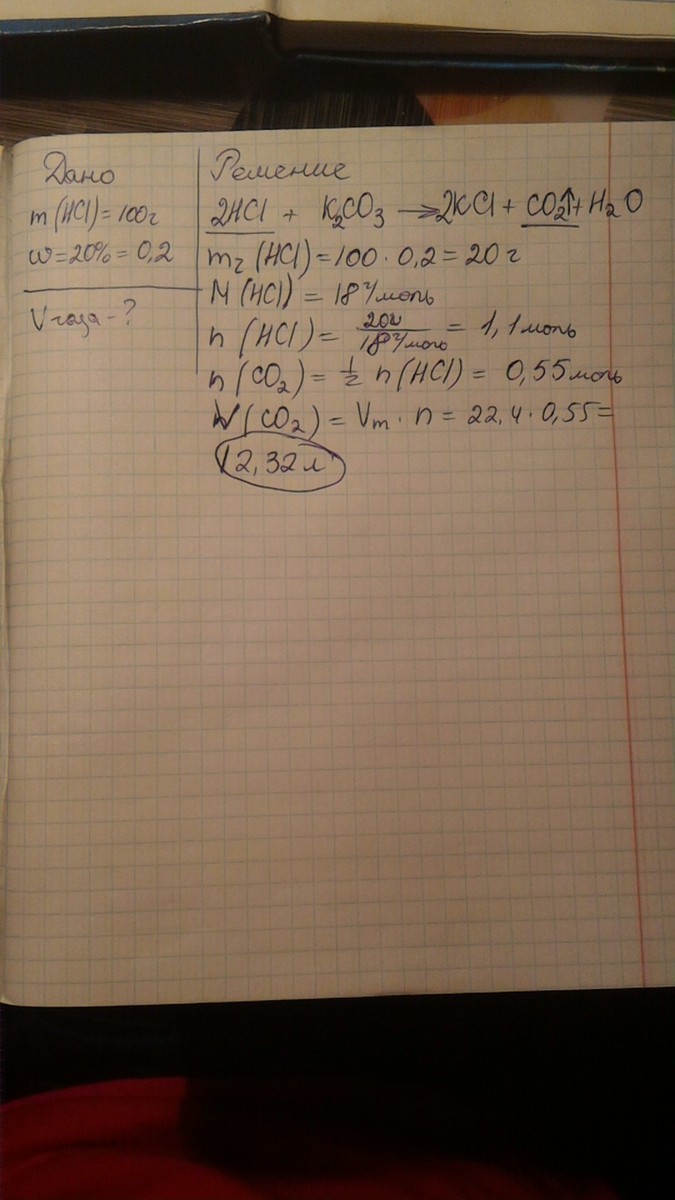 Дано
m (HCl) = 100г
ω = 20% = 0,2
V газа - ?
Решение
2HCl + K₂CO₃ → 2KCl + CO₂↑ + H₂O
m₂ (HCl) = 100 · 0,2 = 20 г
M (HCl) = 18 г/моль
n (HCl) = 20г / 18 г/моль = 1,1 моль
n (CO₂) = 1/2 n (HCl) = 0,55 моль
V (CO₂) = Vm · n = 22,4 · 0,55 =
12,32 л